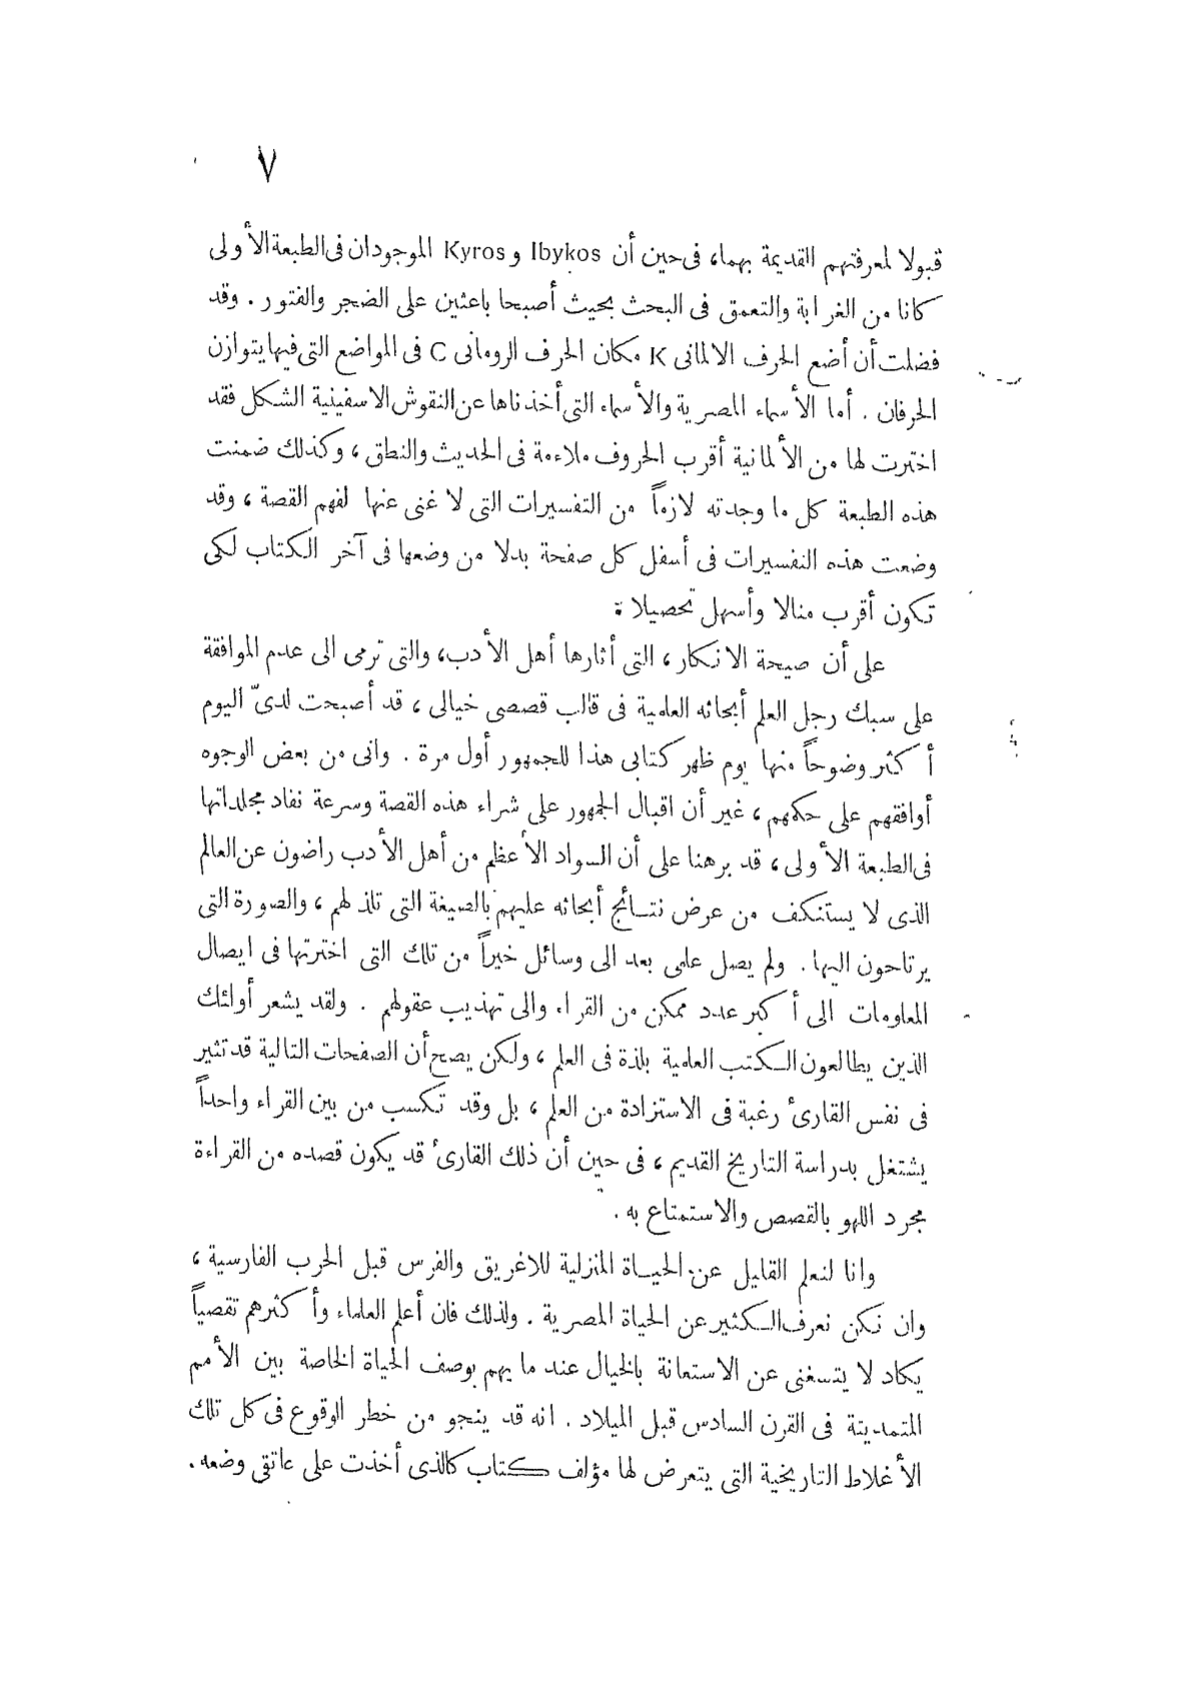 ٧
قبولا لمعرفتهم القديمة بهما، فى حين أن Ibykos و Kyros الموجودان فى الطبعة الأولى
كانا من الغرابة والتعمق فى البحث بحيث أصبحا باعثين على الضجر والفتور . وقد
فضلت أن أضع الحرف الالمانى K مكان الحرف الرومانى C فى المواضع التى فيها يتوازن
الحرفان . أما الأسماء المصرية والأسماء التى أخذناها عن النقوش الاسفينية الشكل فقد
اخترت لها من الألمانية أقرب الحروف ملاءمة فى الحديث والنطق ، وكذلك ضمنت
هذه الطبعة كل ما وجدته لازماً من التفسيرات التى لا غنى عنها لفهم القصة ، وقد
وضعت هذه التفسيرات فى أسفل كل صفحة بدلا من وضعها فى آخر الكتاب لكى
تكون أقرب منالا وأسهل تحصيلا .
على أن صيحة الانكار ، التى أثارها أهل الأدب، والتى ترمى الى عدم الموافقة
على سبك رجل العلم أبحاثه العلمية فى قالب قصصى خيالى ، قد أصبحت لدىّ اليوم
أكثر وضوحاً منها يوم ظهر كتابى هذا للجمهور أول مرة . وانى من بعض الوجوه
أوافقهم على حكمهم ، غير أن اقبال الجمهور على شراء هذه القصة وسرعة نفاد مجلداتها
فى الطبعة الأولى ، قد برهنا على أن السواد الأعظم من أهل الأدب راضون عن العالم
الذى لا يستنكف من عرض نتائج أبحاثه عليهم بالصيغة التى تلذ لهم ، والصورة التى
يرتاحون اليها . ولم يصل علمى بعد الى وسائل خيراً من تلك التى اخترتها فى ايصال
المعلومات الى أكبر عدد ممكن من القراء والى تهذيب عقولهم . ولقد يشعر أولئك
الذين يطالعون الكتب العلمية بلذة فى العلم ، ولكن يصح أن الصفحات التالية قد تثير
فى نفس القارئ رغبة فى الاستزادة من العلم ، بل وقد تكسب من بين القراء واحداً
يشتغل بدراسة التاريخ القديم ، فى حين أن ذلك القارئ قد يكون قصده من القراءة
مجرد اللهو بالقصص والاستمتاع به .
وانا لنعلم القليل عن الحياة المنزلية للاغريق والفرس قبل الحرب الفارسية ،
وان نكن نعرف الكثير عن الحياة المصرية . ولذلك فان أعلم العلماء وأكثرهم تقصياً
يكاد لا يتسغنى عن الاستعانة بالخيال عند ما يهم بوصف الحياة الخاصة بين الأمم
المتمدينة فى القرن السادس قبل الميلاد . انه قد ينجو من خطر الوقوع فى كل تلك
الأغلاط التاريخية التى يتعرض لها مؤلف كتاب كالذى أخذت على عاتقى وضعه .